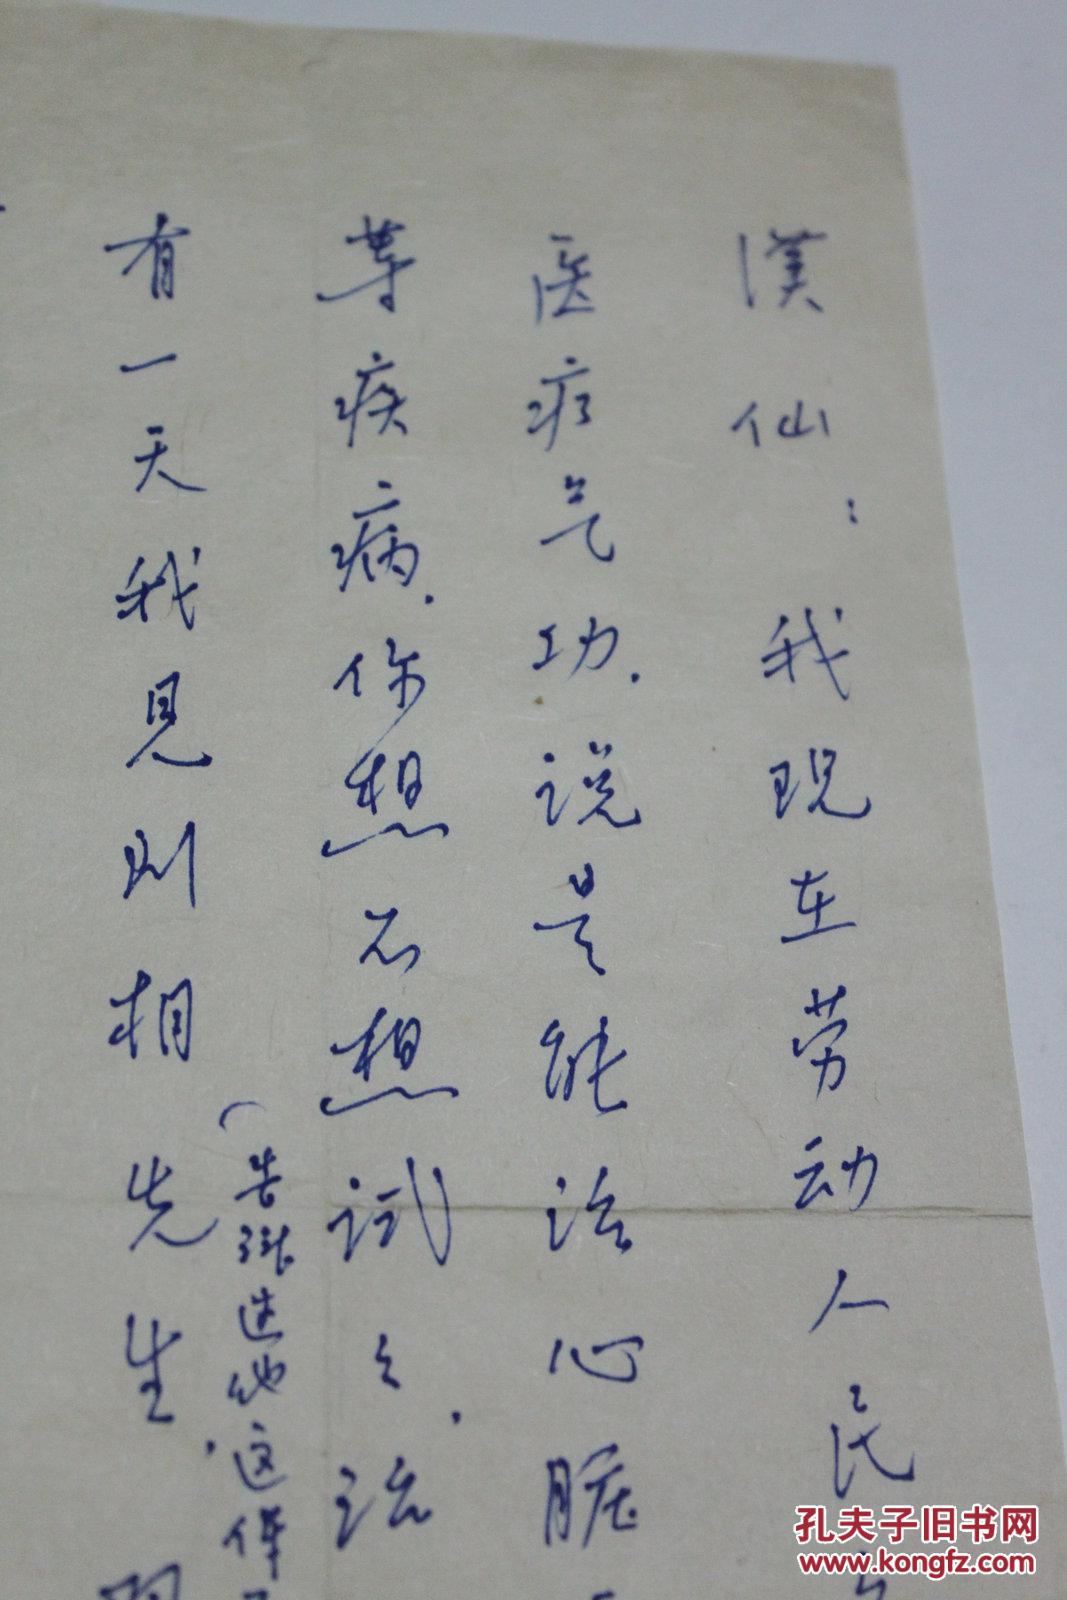 漢仙：我现在劳动人民
医疗气功．说是能治心脏
等疾病．你想不想试之．治
有一天我见则相先生．
（告訴 他这件
孔夫子旧书网
www.kongfz.com